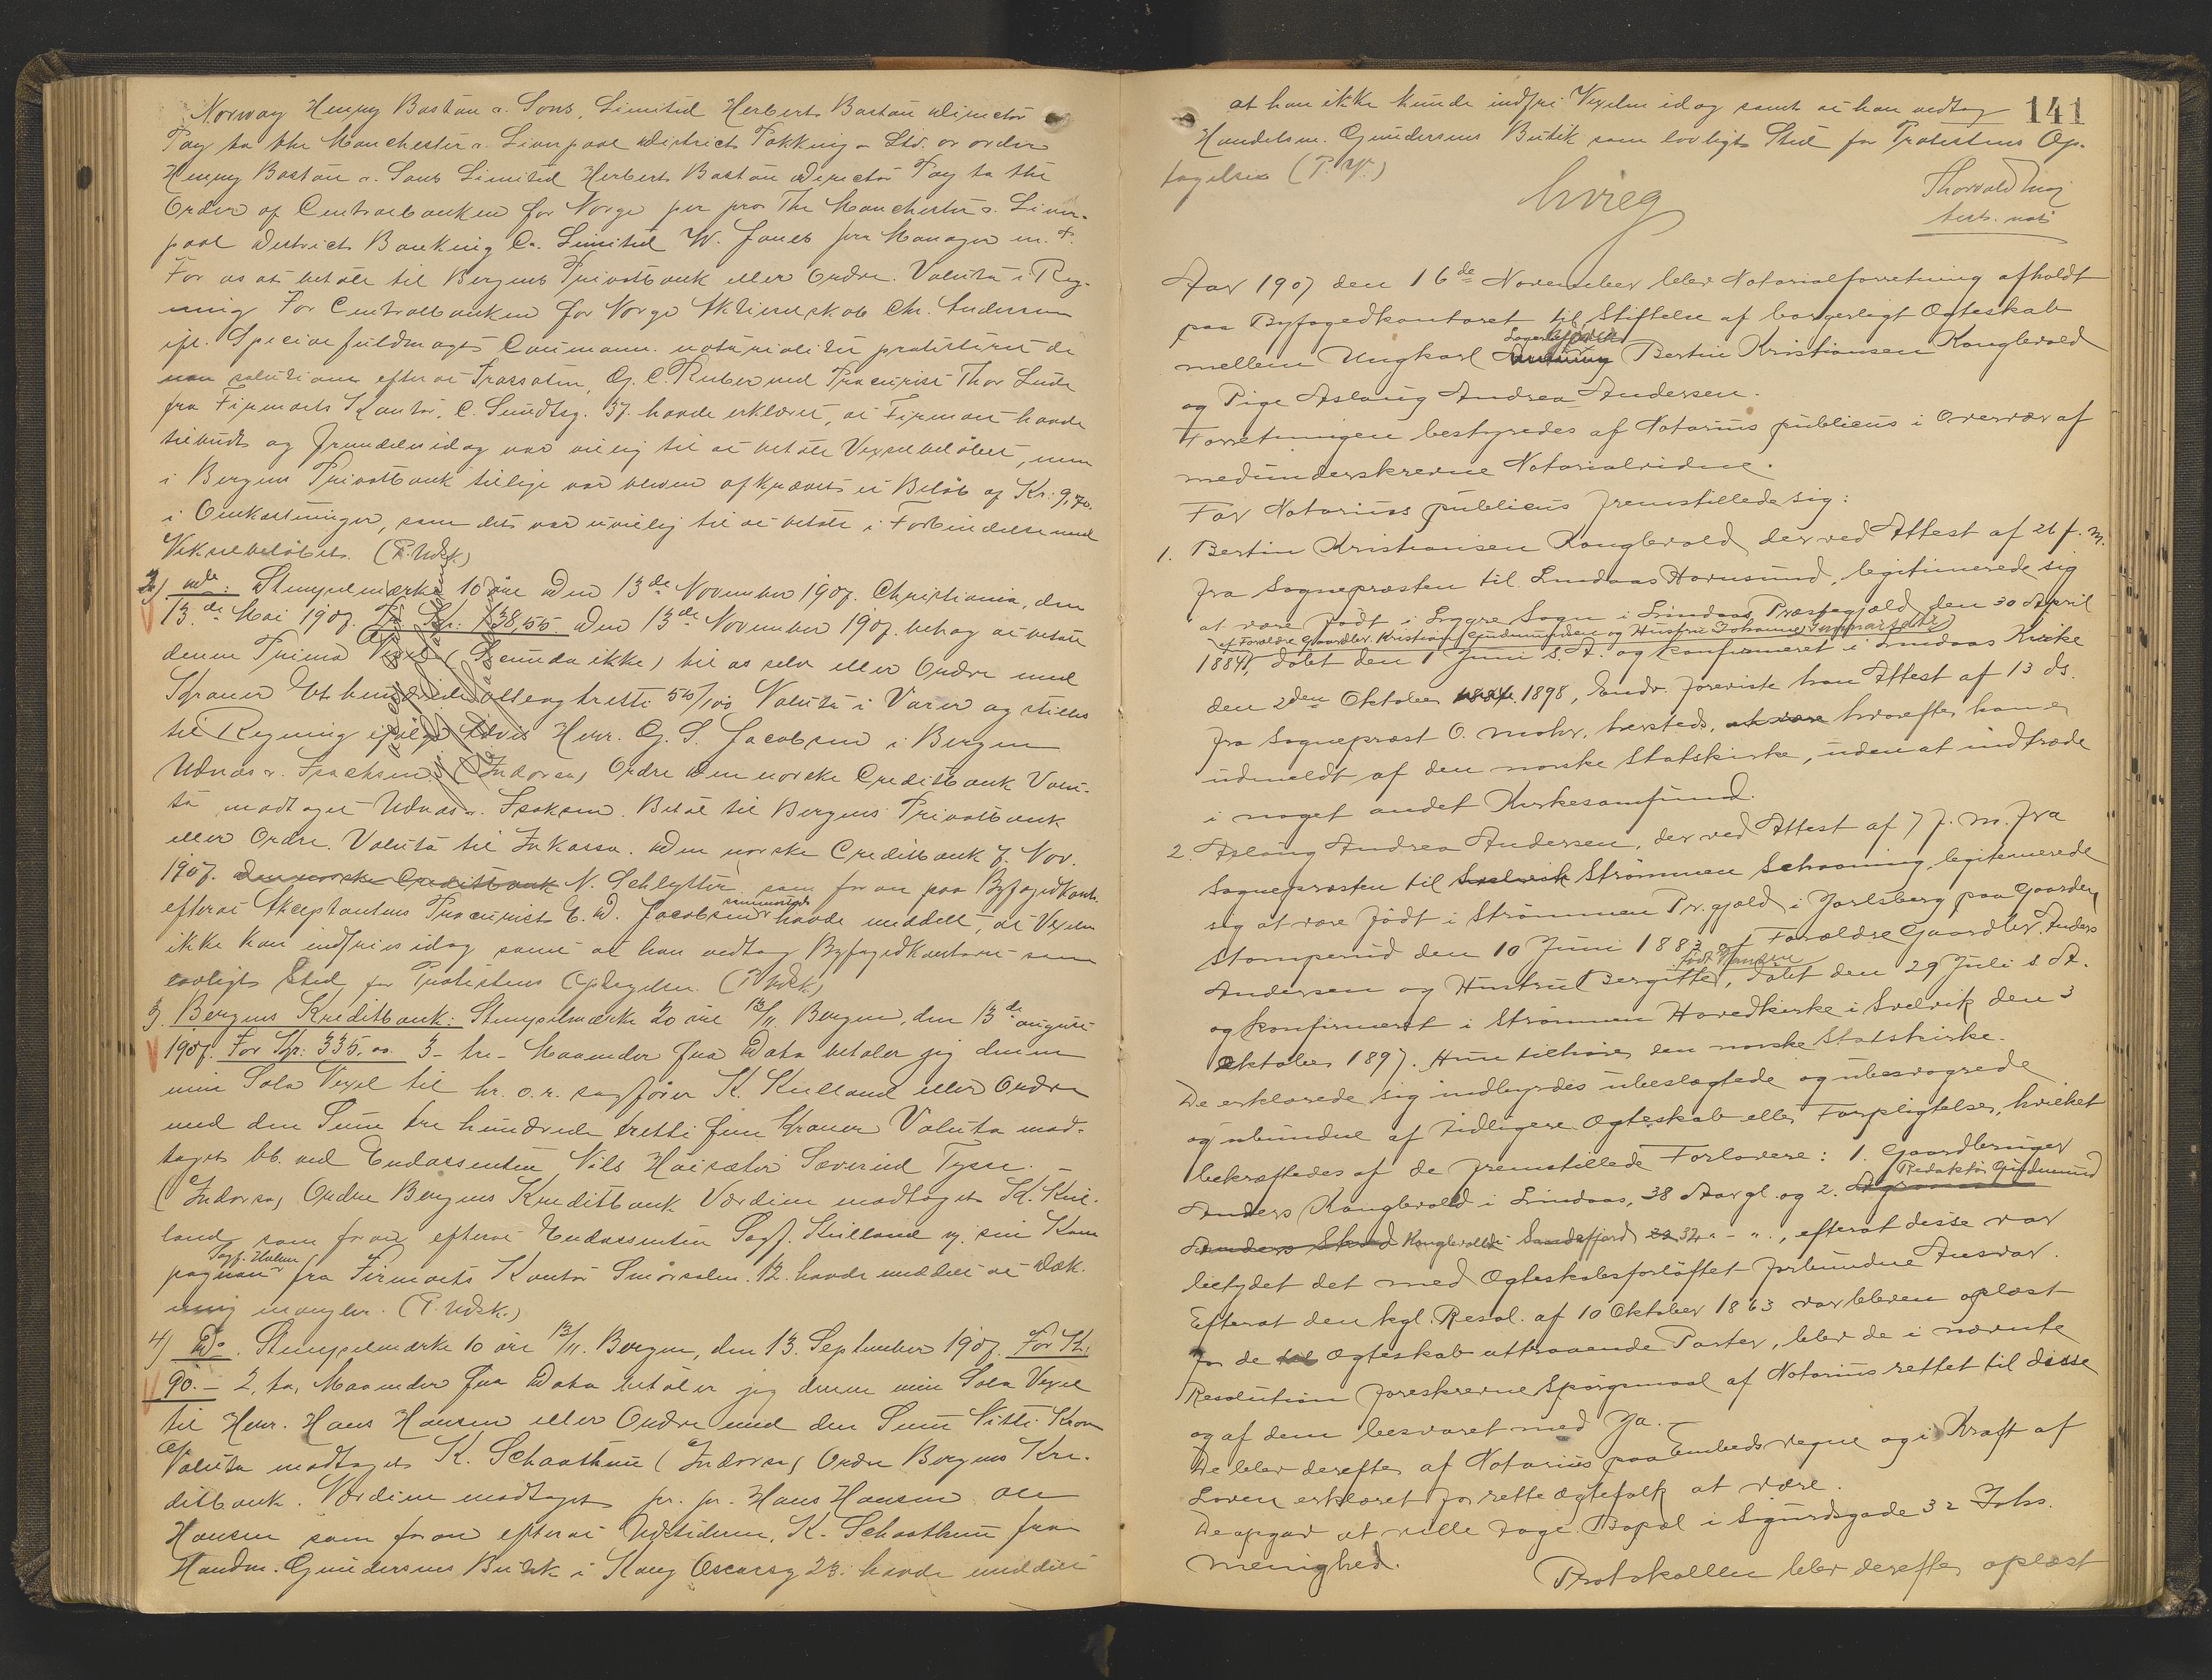 Norway Henry Bastou a. Sons, Limited Herbert Bastou Director
Pay to the Manchester a. Liverpool District Bakking Ltd. or order
Henry Bastou a. Sons Limited Herbert Bastou Director Pay to the
Order of Centralbanken for Norge per pro The Manchester a. Liver-
pool District Banking Co. Limited W. Jones pro Manager m. f.
For os at betale til Bergens Privatbank eller Ordre. Valuta i Reg-
ning For Centralbanken for Norge Aktieselskab Chr. Andersen
ifl. Special fuldmagt notarialiter protesteret de
non solutione efterat Trassaten, G. C. Rieber ved Procurist Thor Lude
fra Firmaets Kontor, C. Sundtsg. 37. havde erklæret, at Firmaet havde
tilbudt og fremdeles idag var villig til at betale Vexelbeløbet, men
i Bergens Privatbank tillige var bleven afkrævet et Beløb af Kr: 9,70.
i Omkostninger, som det var uvillig til at betale i Forbindelse med
Vekselbeløbet. (P. Udsk.)
2) do: Stempelmærke 10 øre Den 13de November 1907. Christiania, den
13.de Mai 1907. For Kr: 138,55. Den 13de November 1907. behag at betale
denne Prima Vexel (Secunda ikke) til os selv eller Ordre med
Kroner Et hundrede otteogtretti 55/100 Valuta i Varer og stilles
til Regning ifølge Advis Herr. G. S. Jacobsen i Bergen
Udnæs & Isachsen. (Indorso) Ordre Den norske Creditbank Valu-
ta modtaget Udnæs & Isaksen. Betal til Bergens Privatbank
eller Ordre. Valuta til Inkasso. Den norske Creditbank 7. Nov.
1907. Den norske Creditbank N. Schlytter som foran paa Byfogedkont.
efterat Akceptantens Procurist E. D. Jacobsen sammesteds havde meddelt, at Vexelen
ikke kan indfries idag samt at han vedtog Byfogedkontoret som
lovligt Sted for Protestens Optagelse. (P. Udsk.)
3. Bergens Kreditbank: Stempelmærke 20 øre 13/11. Bergen, den 13de august
1907. For Kr: 335,00. 3 - tre - Maaneder fra Dato betaler jeg denne
min Sola Vexel til hr. o. r. sagfører K. Kulland eller Ordre
med den Sum tre hundrede tretti fem Kroner Valuta mod-
taget bb. ved Endossenten Nils Høisæter Severind Tysse. —
(Indorso) Ordre Bergens Kreditbank Værdien modtaget K. Kul-
land som foran efterat Endossenten Sagf. Kulland v. sin Kom
pagnon Sagf. Holm fra Firmaets Kontor Smørsalm. 12. havde meddelt at Dæk-
ning mangler. (P. Udsk.)
4) Do. Stempelmærke 10 øre 13/11. Bergen, den 13. September 1907. For Kr.
90.— 2, to, Maaneder fra Dato betaler jeg denne min Sola Vexel
til Herr. Hans Hansen eller Ordre med den Sum Nitti Kron
Valuta modtaget K. Schaathun (Indorso) Ordre Bergens Kre-
ditbank. Værdien modtaget pr. pr. Hans Hansen Ole
Hansen som foran efterat Udstederen, K. Schaathun fra
Handm. Gundersens Butik i Kong Oscarsg 23. havde meddelt
at han ikke kunde indfri Vexelen idag samt at han vedtog 141
Handelsm. Gundersens Butik som lovligt Sted for Protestens Op-
tagelse (P. U.)
Thorvald
test. not
Aar 1907 den 16de November blev Notarialforretning afholdt
paa Byfogedkontoret til Stiftelse af borgerligt Ægteskab
mellem Ungkarl Bertin Kristiansen Konglevold
og Pige Aslaug Andrea Andersen.
Forretningen bestyredes af Notarius publicus i Overvær af
medunderskrevne Notarialvidne.
For Notarius publicus fremstillede sig:
1. Bertin Kristiansen Konglevold der ved Attest af 26 f. M.
fra Sognepræsten til Lindaas Hornsund, legitimerede sig
at være født i Lygre Sogn i Lindaas Præstegjæld den 30 April
af Forældre Gaardbr. Kristian Gudmundsen og Hustru Johanne
1884, døbt den 1 Juni s. A. og konfirmeret i Lindaas Kirke
den 2den Oktober 1884. 1898, Endv. foreviste han Attest af 13 ds.
fra Sognepræst O. Mohr, hersteds, at være hvorefter han er
udmeldt af den norske Statskirke, uden at indtræde
i noget andet Kirkesamfund.
2. Aslaug Andrea Andersen, der ved Attest af 7 f. M. fra
Sognepræsten til Svelvik Strømmen Schaaning, legitimerede
sig at være født i Strømmen Pr.gjæld i Jarlsberg paa Gaarden
Stomperud den 10 Juni 1883 af Forældre Gaardbr. Anders
Andersen og Hustru Bergitte født Hansen, døbt den 29 Juli s. A.
og konfirmeret i Strømmen Hovedkirke i Svelvik den 3
Oktober 1897. Hun tilhører den norske Statskirke.
De erklærede sig indbyrdes ubeslægtede og ubesvogrede
og ubundne af tidligere Ægteskab eller Forpligtelser, hvilket
bekræftedes af de fremstillede Forlovere: 1. Gaardbruger
Anders Konglevold i Lindaas, 38 Aar gl. og 2. Redaktør Gudmund
Anders Skard Konglevoll i Sandefjord 32 " – ", efterat disse var
betydet det med Ægteskabsforløftet forbundne Ansvar.
Efterat den kgl. Resol. af 10 Oktober 1863 var bleven oplæst
for de til Ægteskab attraaende Parter, blev de i nævnte
Resolution foreskrevne Spørgsmaal af Notarius rettet til disse
og af dem besvaret med Ja. —
De blev derefter af Notarius paa Embeds vegne og i Kraft af
Loven erklæret for rette Ægtefolk at være.
De opgav at ville tage Bopæl i Sigurdsgade 32 Johs.
menighed.
Protokollen blev derefter oplæst